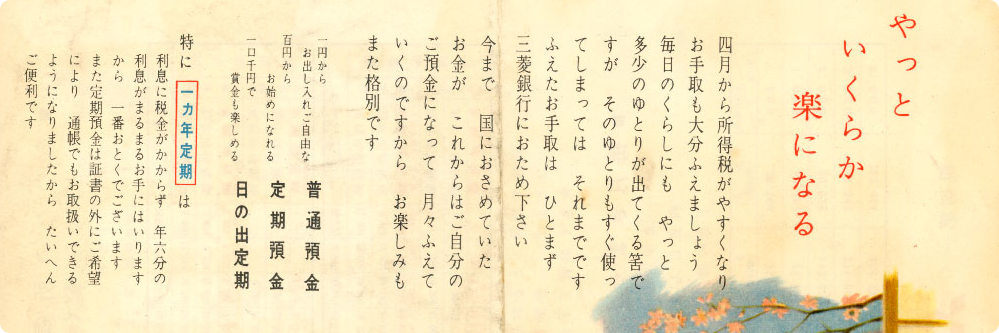 やっと
いくらか
楽になる
四月から所得税がやすくなり
お手取も大分ふえましょう
毎日のくらしにも　やっと
多少のゆとりが出てくる筈で
すが　そのゆとりもすぐ使っ
てしまっては　それまでです
ふえたお手取は　ひとまず
三菱銀行におため下さい
今まで　国におさめていた
お金が　これからはご自分の
ご預金になって　月々ふえて
いくのですから　お楽しみも
また格別です
一円から
お出し入れご自由な
普通預金
百円から
お始めになれる
定期預金
一口千円で
賞金も楽しめる
日の出定期
特に 一カ年定期 は
利息に税金がかからず　年六分の
利息がまるまるお手にはいります
から　一番おとくでございます
また定期預金は証書の外にご希望
により　通帳でもお取扱いできる
ようになりましたから　たいへん
ご便利です